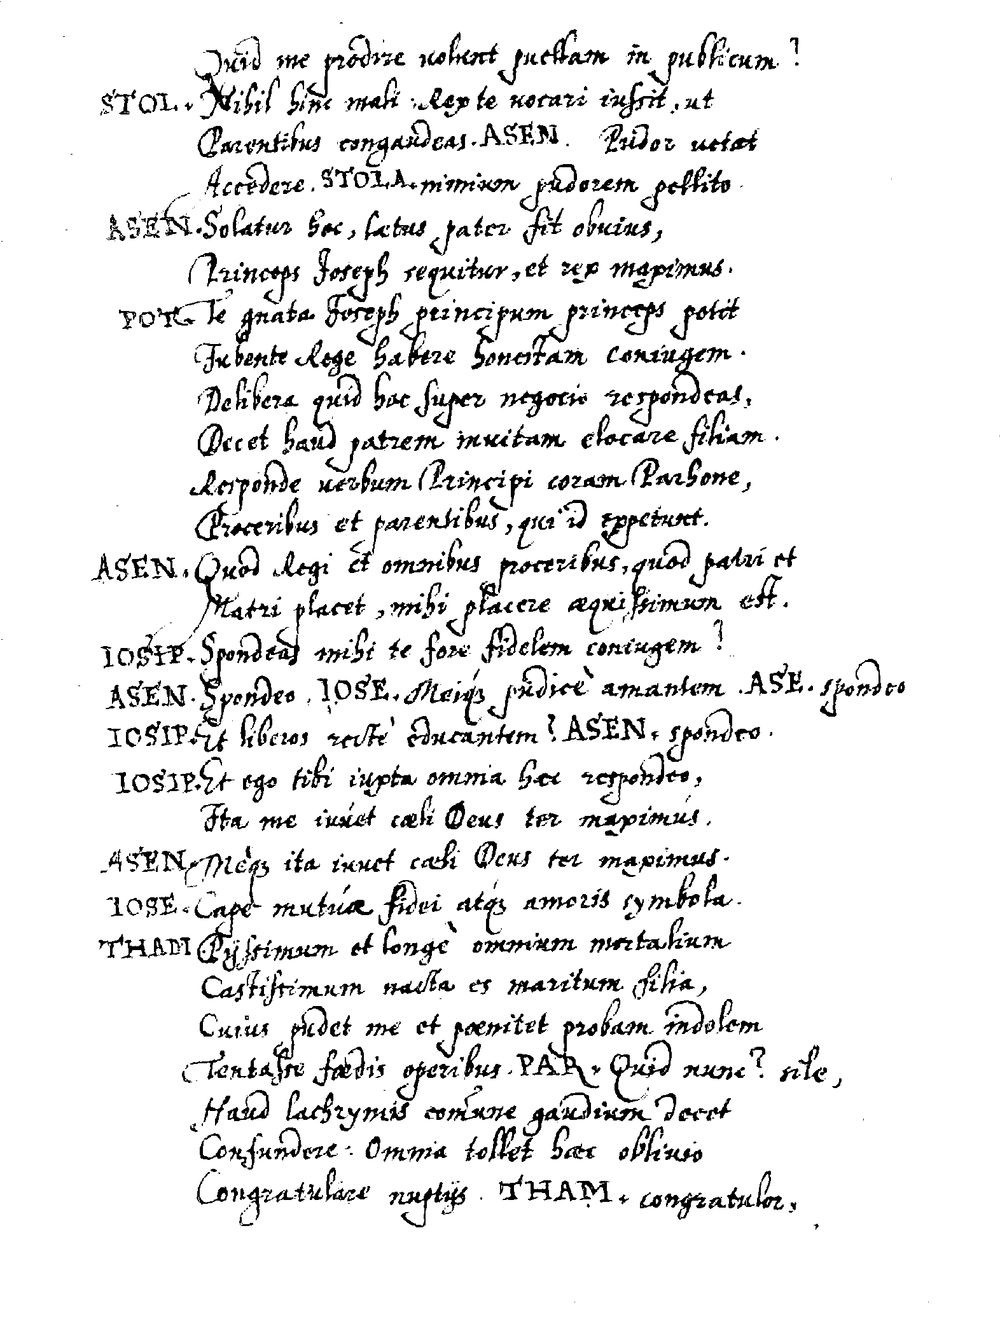 Quid me prodire volunt puellam in publicum?
STOL. Nihil hinc mali. Rex te vocari iussit, ut
Parentibus congaudeas. ASEN. Pudor vetat
Accedere. STOLA. nimium pudorem pellito.
ASEN. Solatur hoc, lætus pater fit obvius,
Princeps Joseph sequitur, et rex maximus.
POT. Te gnata Joseph principum princeps petit
Jubente Rege habere honestam coniugem.
Delibera quid hoc super negocio respondeas,
Decet haud patrem invitam elocare filiam.
Responde verbum Principi coram Parhone,
Proceribus et parentibus, qui id expetunt.
ASEN. Quod Regi et omnibus proceribus, quod patri et
Matri placet, mihi placere æquissimum est.
IOSIP. Spondeas mihi te fore fidelem coniugem?
ASEN. Spondeo. IOSE. Meiq́ʒ pudicè amantem. ASE. spondeo
IOSIP. Et liberos rectè educantem? ASEN. spondeo.
IOSIP. Et ego tibi iuxta omnia hæc respondeo,
Ita me iuvet cæli Deus ter maximus.
ASEN. Meq́ʒ ita iuvet cæli Deus ter maximus.
IOSE. Cape mutuæ fidei atq́ʒ amoris symbola.
THAM Pijssimum et longè omnium mortalium
Castissimum nacta es maritum filia,
Cuius pudet me et pœnitet probam indolem
Tentasse fœdis operibus. PAR. Quid nunc? sile,
Haud lachrymis com̃une gaudium decet
Confundere: Omnia tollet hæc oblivio
Congratulare nuptijs. THAM. congratulor,